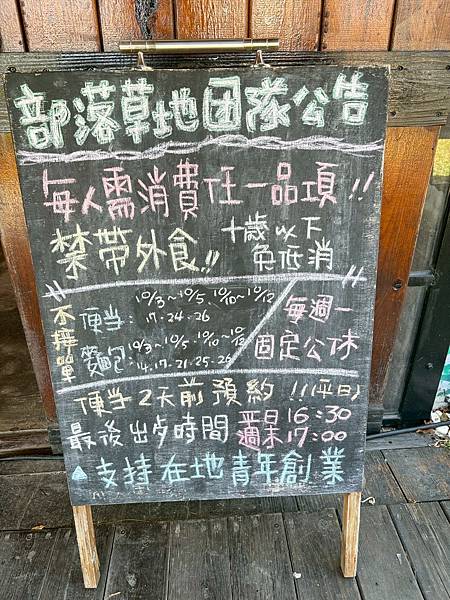 部落草地团隊公告
每人需消費任一品項!!
禁帶外食!!
十歲以下
免低消
不接單
便当:
10/3~10/5、10/10~10/12
17.24.26
麵包:
10/3~10/5、10/10~10/12
14.17.21.25.26
每週一
固定公休
便当2天前預約!!(平日)
最後出歺時間
平日16:30
週末17:00
支持在地青年創業